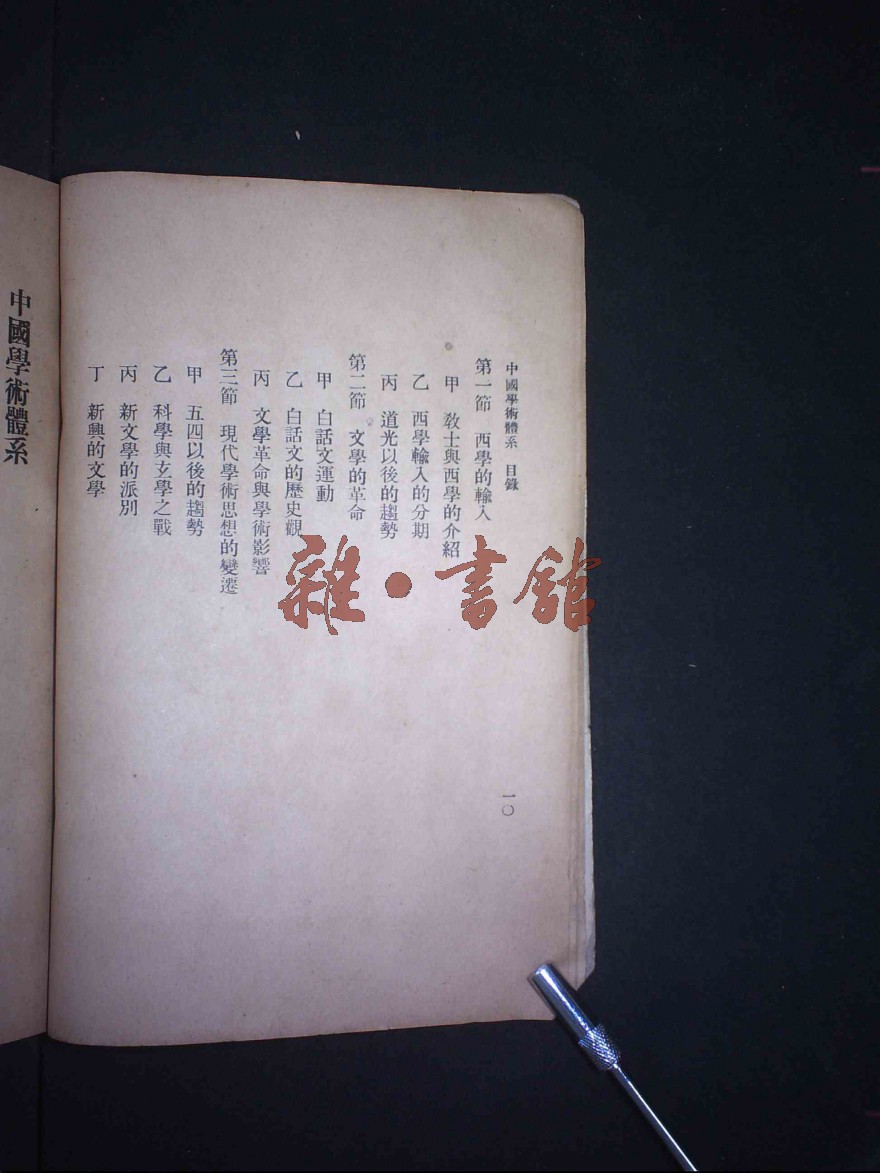 中國學術體系 目錄
一〇
第一節 西學的輸入
甲 敎士與西學的介紹
乙 西學輸入的分期
丙 道光以後的趨勢
第二節 文學的革命
甲 白話文運動
乙 白話文的歷史觀
丙 文學革命與學術影響
第三節 現代學術思想的變遷
甲 五四以後的趨勢
乙 科學與玄學之戰
丙 新文學的派別
丁 新興的文學
中國學術體系
雜·書館